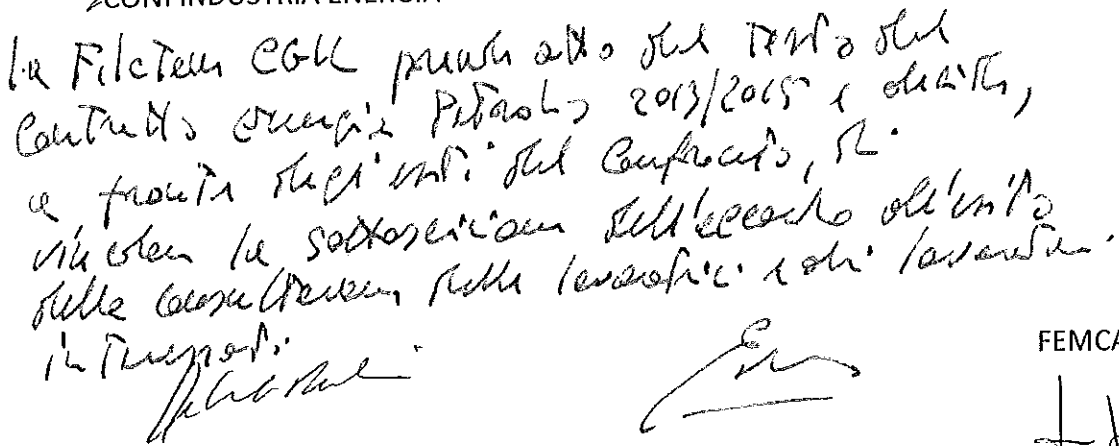 CONFINDUSTRIA ENERGIA
la Filctem CGIL prende atto del testo del
Contratto energia Petrolio 2013/2015 e decide,
a fronte degli esiti del confronto, di
vincolare la sottoscrizione dell'accordo all'esito
della consultazione delle lavoratrici e dei lavoratori
interessati.
FEMCA